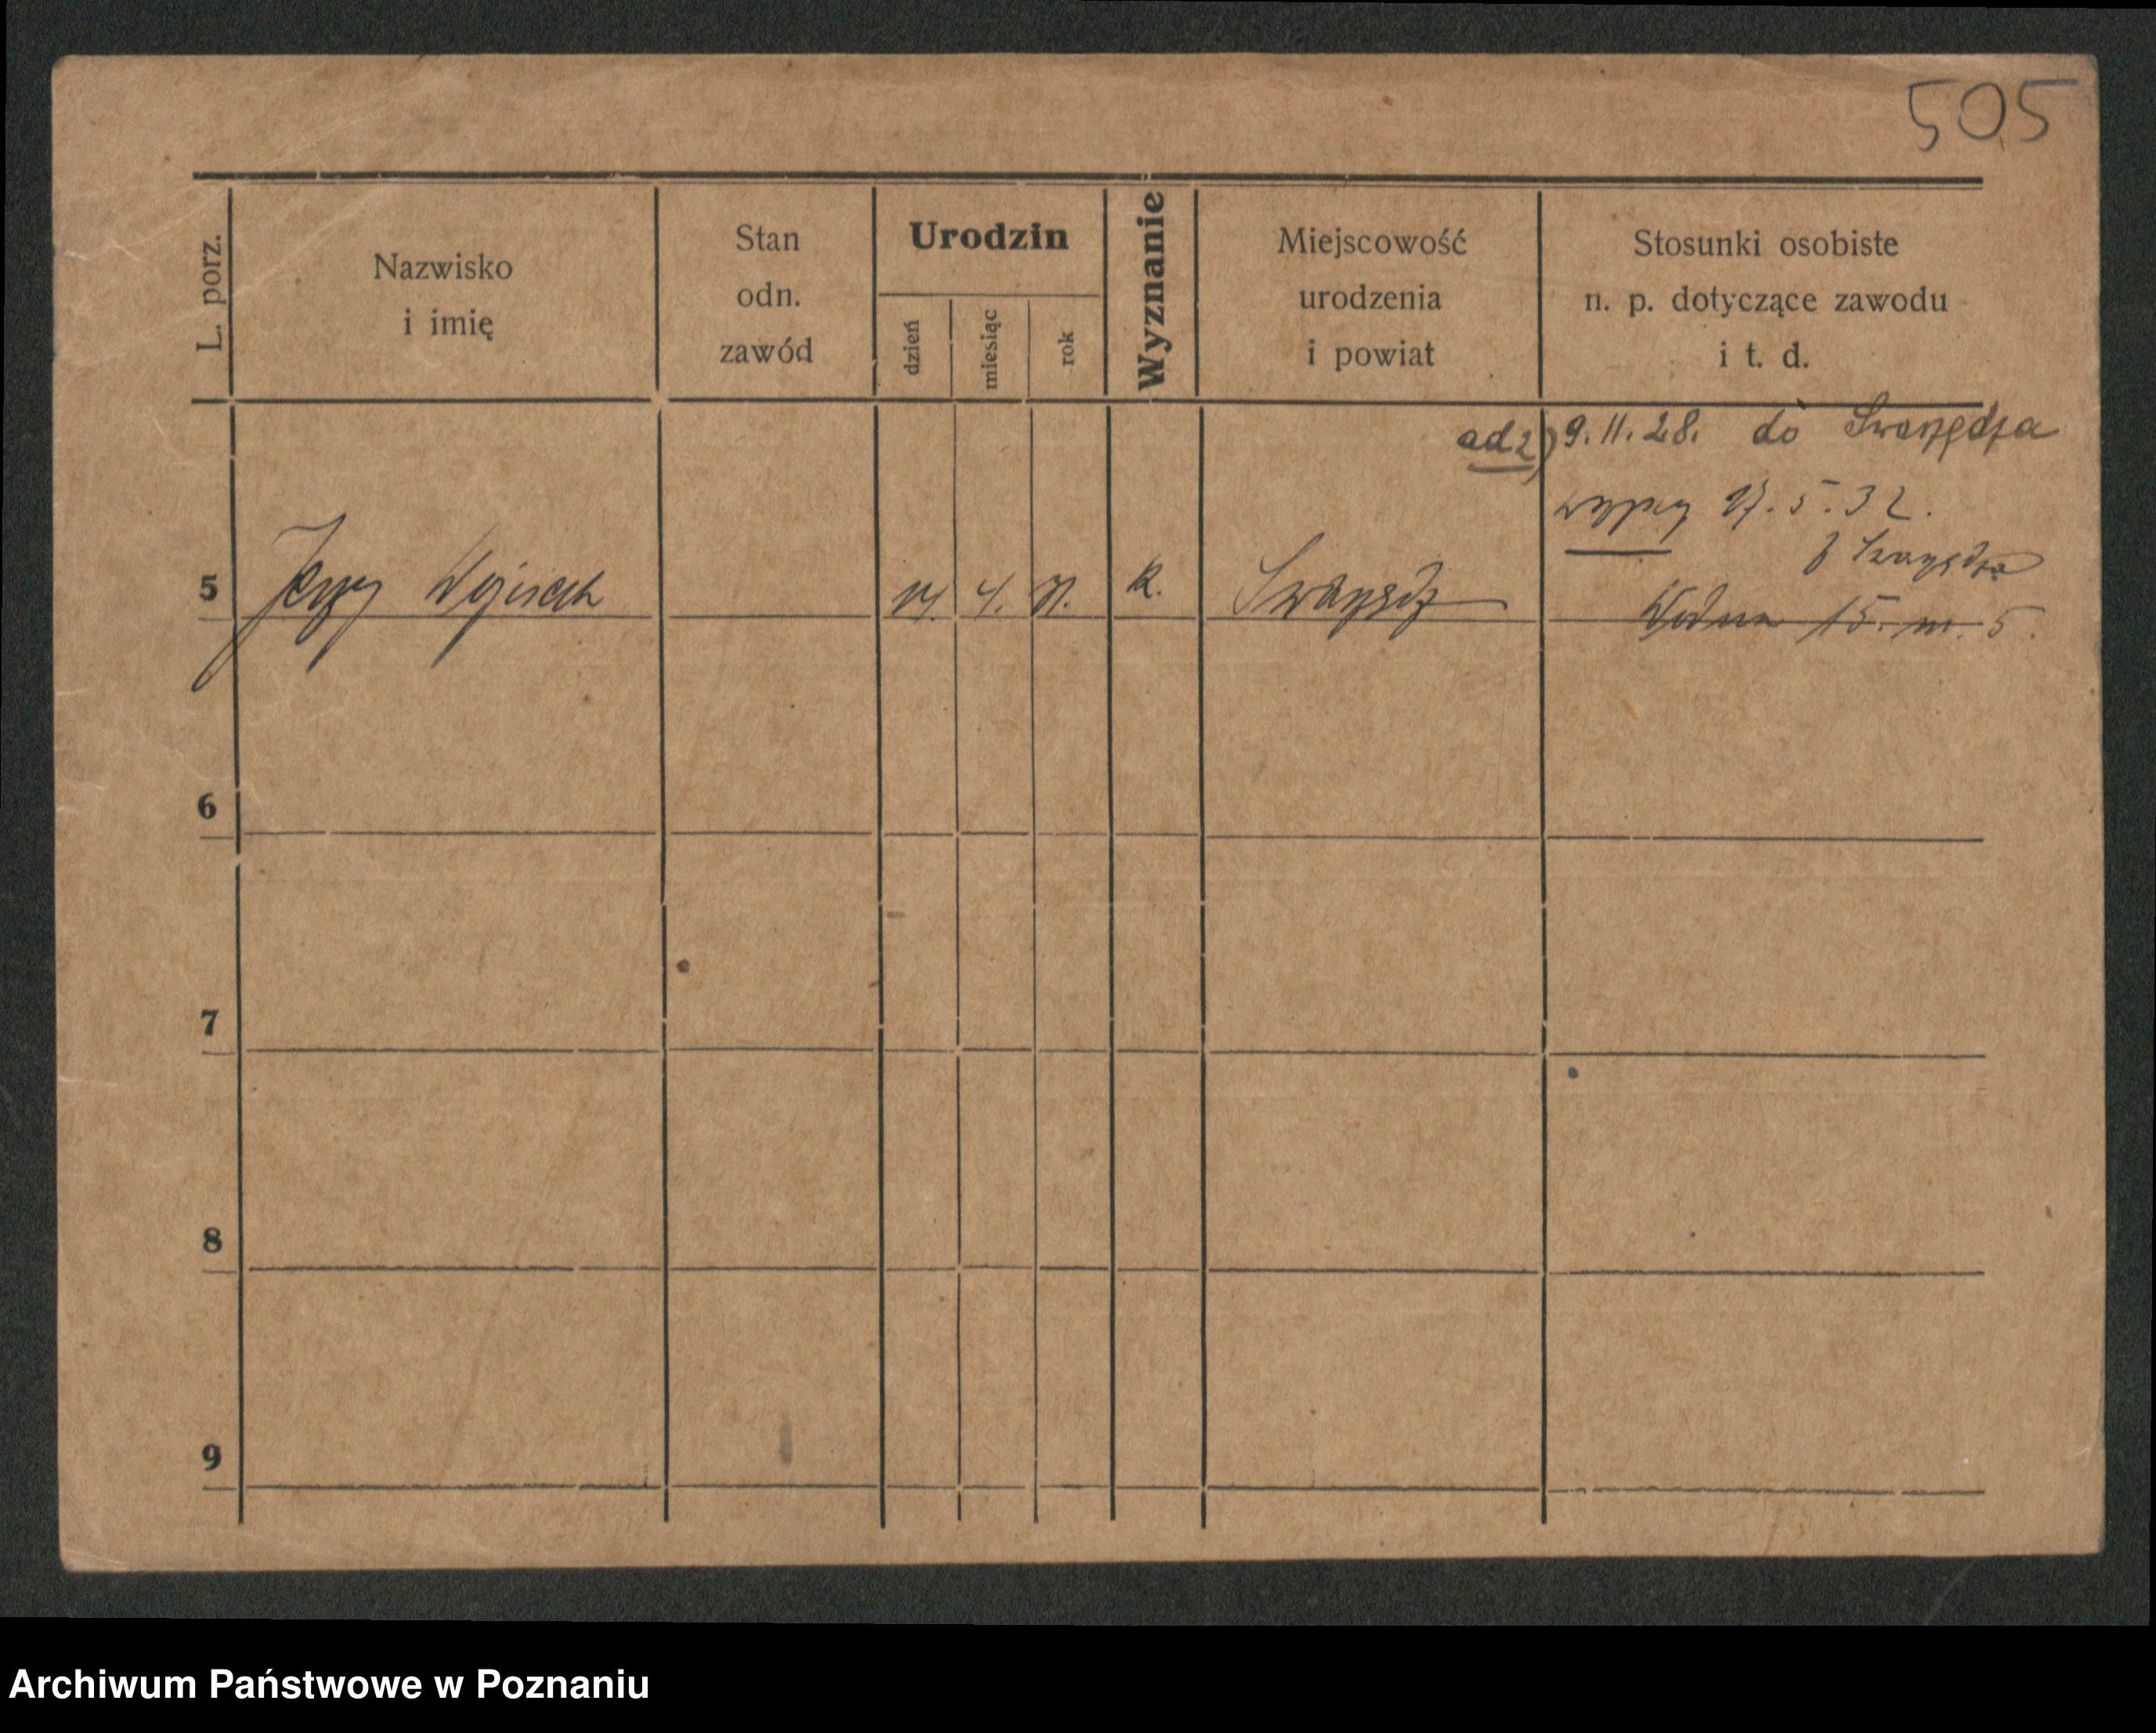 505
L. porz.
Nazwisko
i imię
Stan
odn.
zawód
Urodzin
dzień
miesiąc
rok
Wyznanie
Miejscowość
urodzenia
i powiat
Stosunki osobiste
n. p. dotyczące zawodu
i t. d.
ad 2) 9.11.28. do Swarzędza
17.5.32.
z Swarzędza
5 Jerzy Wojciech 4. k. Swarzędz Wodna 15. m. 5.
6
7
8
9
Archiwum Państwowe w Poznaniu